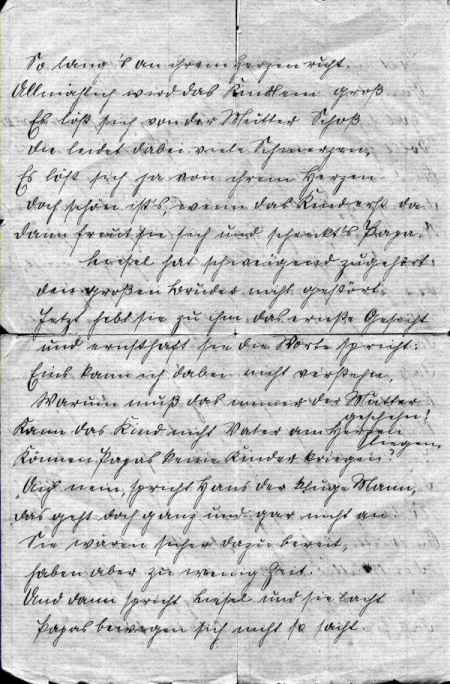 So lang's an ihrem Herzen ruht.
Allmählich wird das Kindlein groß
Es löst sich von der Mutter Schoß
die leidet dabei viele Schmerzen,
Es löst sich ja von ihrem Herzen
doch schön ist's, wenn das Kind erst da
dann freut sie sich und schenkt's Papa.
Liesel hat schweigend zugehört
den großen Bruder nicht gestört.
Jetzt hebt sie zu ihm das ernste Gesicht
und ernsthaft sie die Worte spricht:
Eins kann ich dabei nicht verstehn,
Warum muß das immer der Mutter
geschehn!
Kann das Kind nicht Vater am Herzen
liegen,
Können Papas keine Kinder kriegen?
Ach nein, spricht Hans der kluge Mann,
das geht doch ganz und gar nicht an
Sie wären sicher dazu bereit,
haben aber zu wenig Zeit.
Und dann spricht Liesel und sie lacht
Papas bewegen sich nicht so sacht.